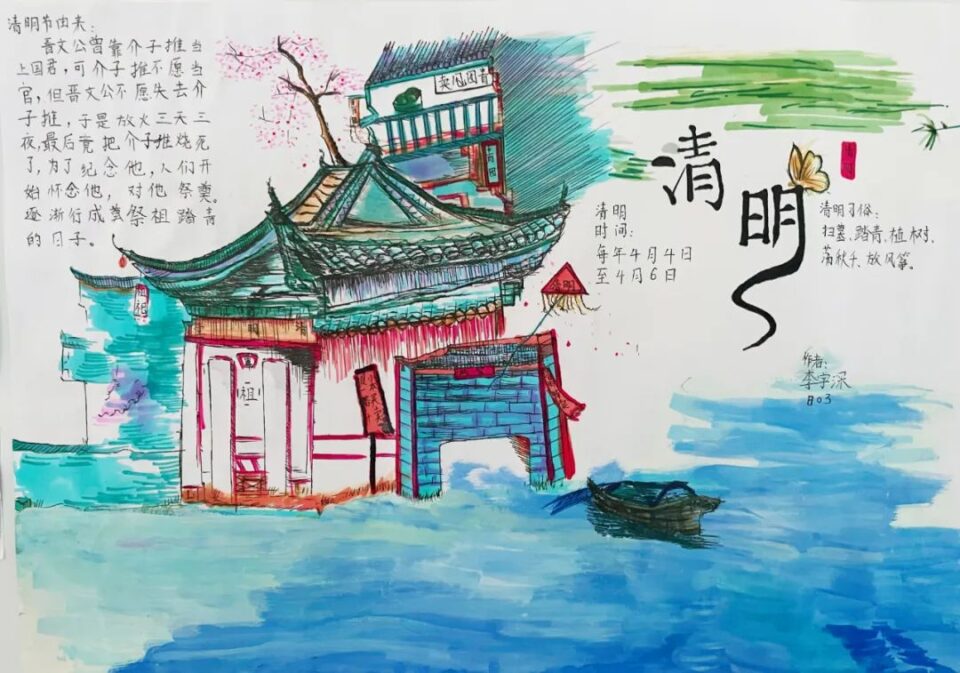 清明节由来:
晋文公曾靠介子推当
上国君,可介子推不愿当
官,但晋文公不愿失去介
子推,于是放火三天三
夜,最后竟把介子推烧死
了,为了纪念他,人们开
始怀念他,对他祭奠。
逐渐行成祭祖踏青
的日子。
清明
清明
时间:
每年4月4日
至4月6日
清明习俗:
扫墓、踏青、植树、
荡秋千、放风筝。
作者:
李宇深
清明
祖